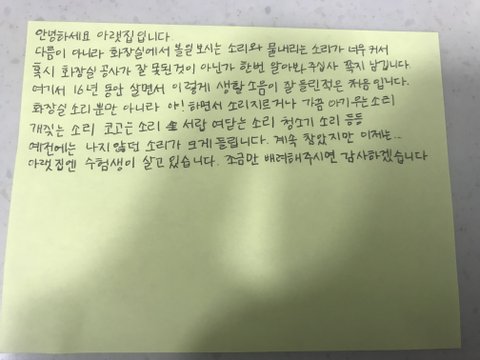 안녕하세요 아랫집입니다
다름이 아니라 화장실에서 볼일 보시는 소리와 물내리는 소리가 너무 커서
혹시 화장실 공사가 잘 못된것이 아닌가 한번 알아봐 주십사 쪽지 남깁니다.
여기서 16년 동안 살면서 이렇게 생활 소음이 잘 들린적은 처음 입니다.
화장실 소리뿐만 아니라 야! 하면서 소리지르거나 가끔 아기우는소리
개짖는 소리 코고는소리 서랍 여닫는 소리 청소기 소리 등등
예전에는 나지않던 소리가 크게 들립니다. 계속 참았지만 이제는...
아랫집엔 수험생이 살고 있습니다. 조금만 배려해주시면 감사하겠습니다